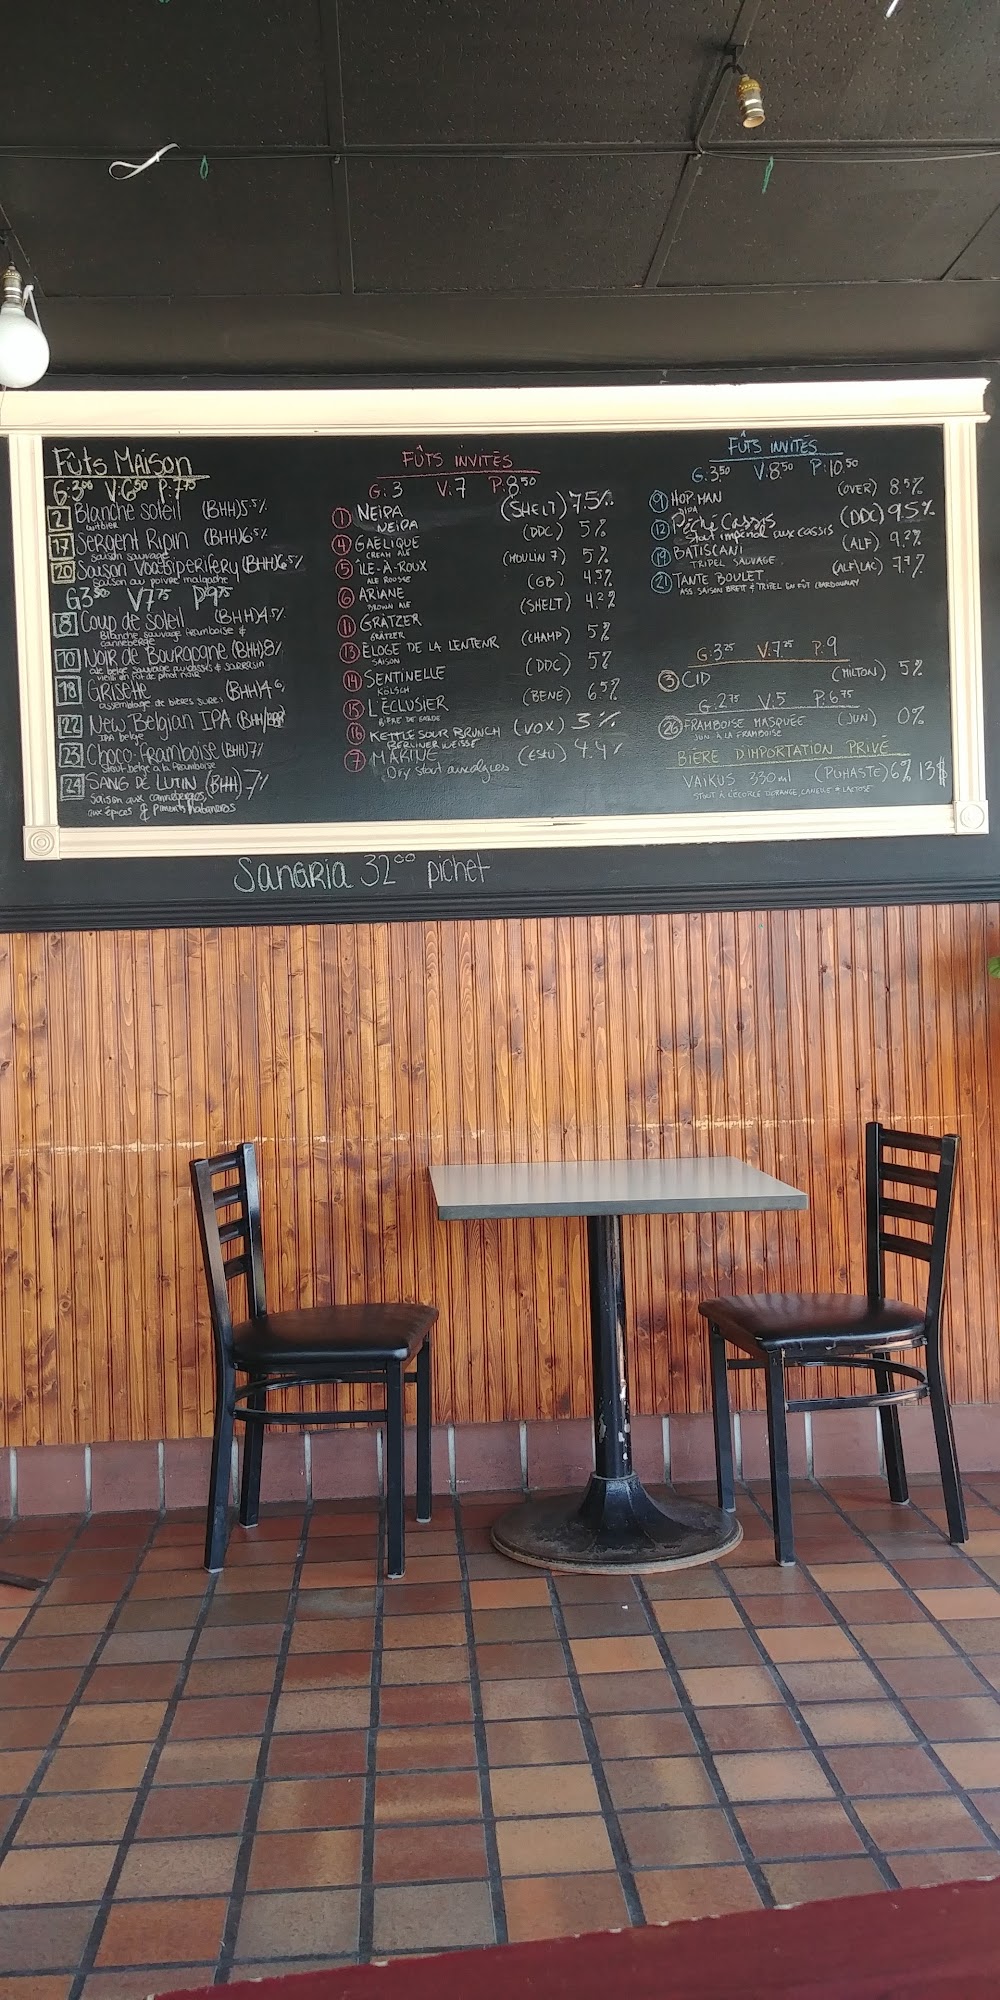 Fûts Maison
G:3⁰⁰ V:6⁵⁰ P:7⁷⁵
2 Blanche Soleil (BHH) 5.5%
witbier
17 Sergent Ripin (BHH) 6.5%
saison sauvage
20 Saison Voatsiperifery (BHH) 6.5%
saison au poivre malgache
G3⁵⁰ V7⁷⁵ P9⁷⁵
8 Coup de soleil (BHH) 4.5%
Blanche sauvage framboise &
canneberge
10 Noir de Bourgogne (BHH) 8%
vieilli en fût de pinot noir
18 Grisette (BHH) 4
assemblage de bières sures
22 New Belgian IPA (BHH)
IPA belge
23 Choco framboise (BHH) 7%
Stout belge à la framboise
24 SANG DE LUTIN (BHH) 7%
Saison aux canneberges,
aux épices & piments habaneros
FÛTS INVITÉS
G:3 V:7 P:8⁵⁰
1 NEIPA (SHELT) 7.5%
NEIPA
4 GAELIQUE (DDC) 5%
CREAM ALE
5 ÎLE-À-ROUX (MOULIN 7) 5%
ALE ROUSSE
6 ARIANE (GB) 4.5%
BROWN ALE
11 GRÄTZER (SHELT) 4.2%
GRÄTZER
13 ÉLOGE DE LA LENTEUR (CHAMP) 5%
SAISON
14 SENTINELLE (DDC) 5%
KÖLSCH
15 L'ÉCLUSIER (BENE) 6.5%
BIÈRE DE GARDE
16 KETTLE SOUR BRUNCH (VOX) 3%
BERLINER WEISSE
7 MARINE (EStu) 4.4%
Dry Stout aux algues
FÛTS INVITÉS
G:3⁵⁰ V:8⁵⁰ P:10⁵⁰
9 HOP MAN (OVER) 8.5%
12 Péché Cassis (DDC) 9.5%
Stout impérial aux cassis
19 BATISCAN (ALF) 9.2%
TRIPEL SAUVAGE
21 TANTE BOULET (ALF/LAC) 7.7%
ASS SAISON BRETT & TRIPEL EN FÛT CHARDONNAY
G:3²⁵ V:7²⁵ P:9
3 CID (MILTON) 5%
G:2⁷⁵ V:5 P:6⁷⁵
26 FRAMBOISE MASQUÉE (JUN) 0%
JUN À LA FRAMBOISE
BIÈRE D'IMPORTATION PRIVÉ
VAIKUS 330ml (PUHASTE) 6% 13$
STOUT À L'ÉCORCE D'ORANGE, CANELLE & LACTOSE
SANGRIA 32⁰⁰ pichet